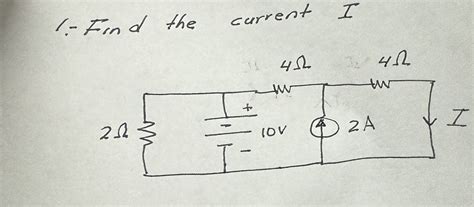 1.- Find the current I
4Ω 4Ω
2Ω + 10V - 2A I